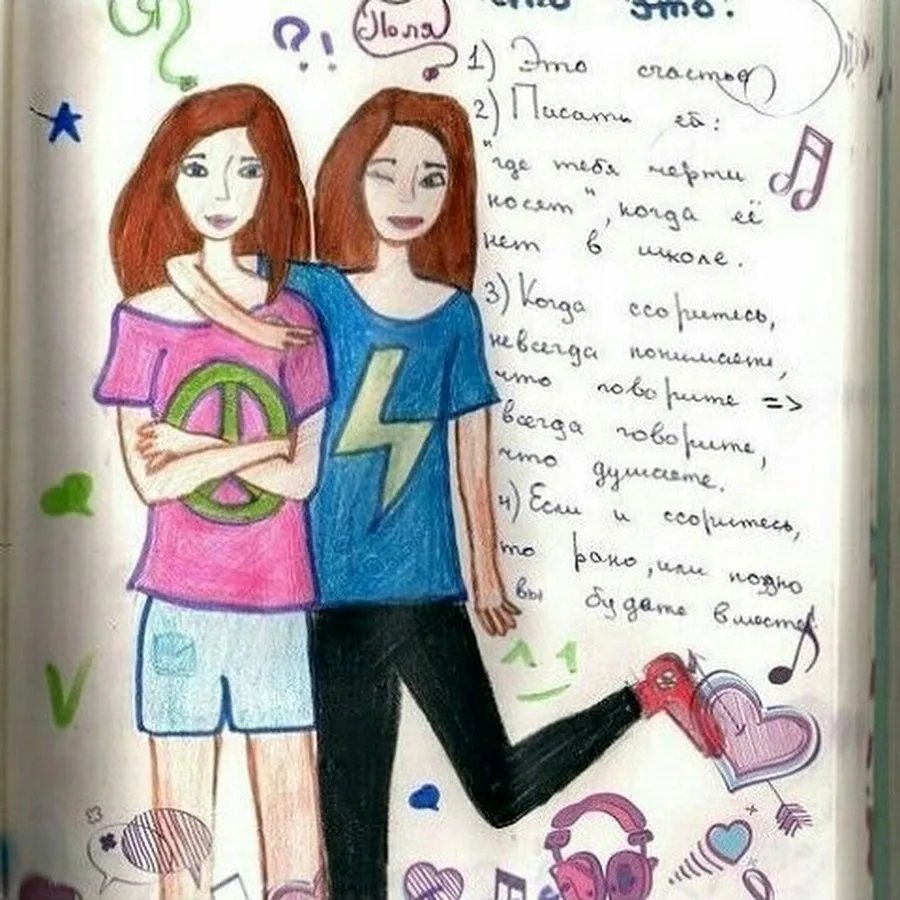 Я
?!
Поля
что это?
1) Это счастье
2) Писать ей:
"где тебя черти
носят", когда её
нет в школе.
3) Когда ссоритесь,
невсегда понимаете,
что говорите =>
всегда говорите,
что думаете.
4) Если и ссоритесь,
то рано, или поздно
вы будете вместе